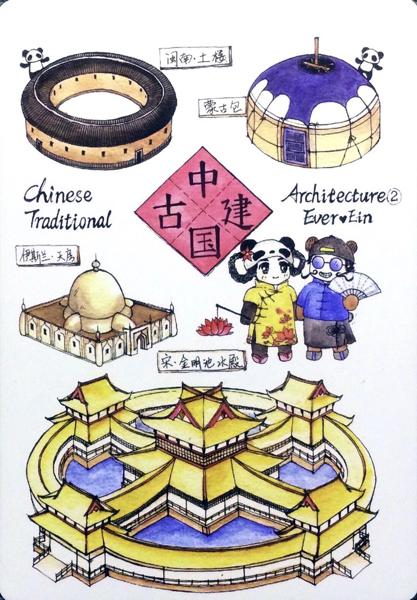 闽南·土楼
蒙古包
中
古 建
国
Chinese
Traditional
Architecture②
Ever♥Ein
伊斯兰·天房
宋·金明池水殿